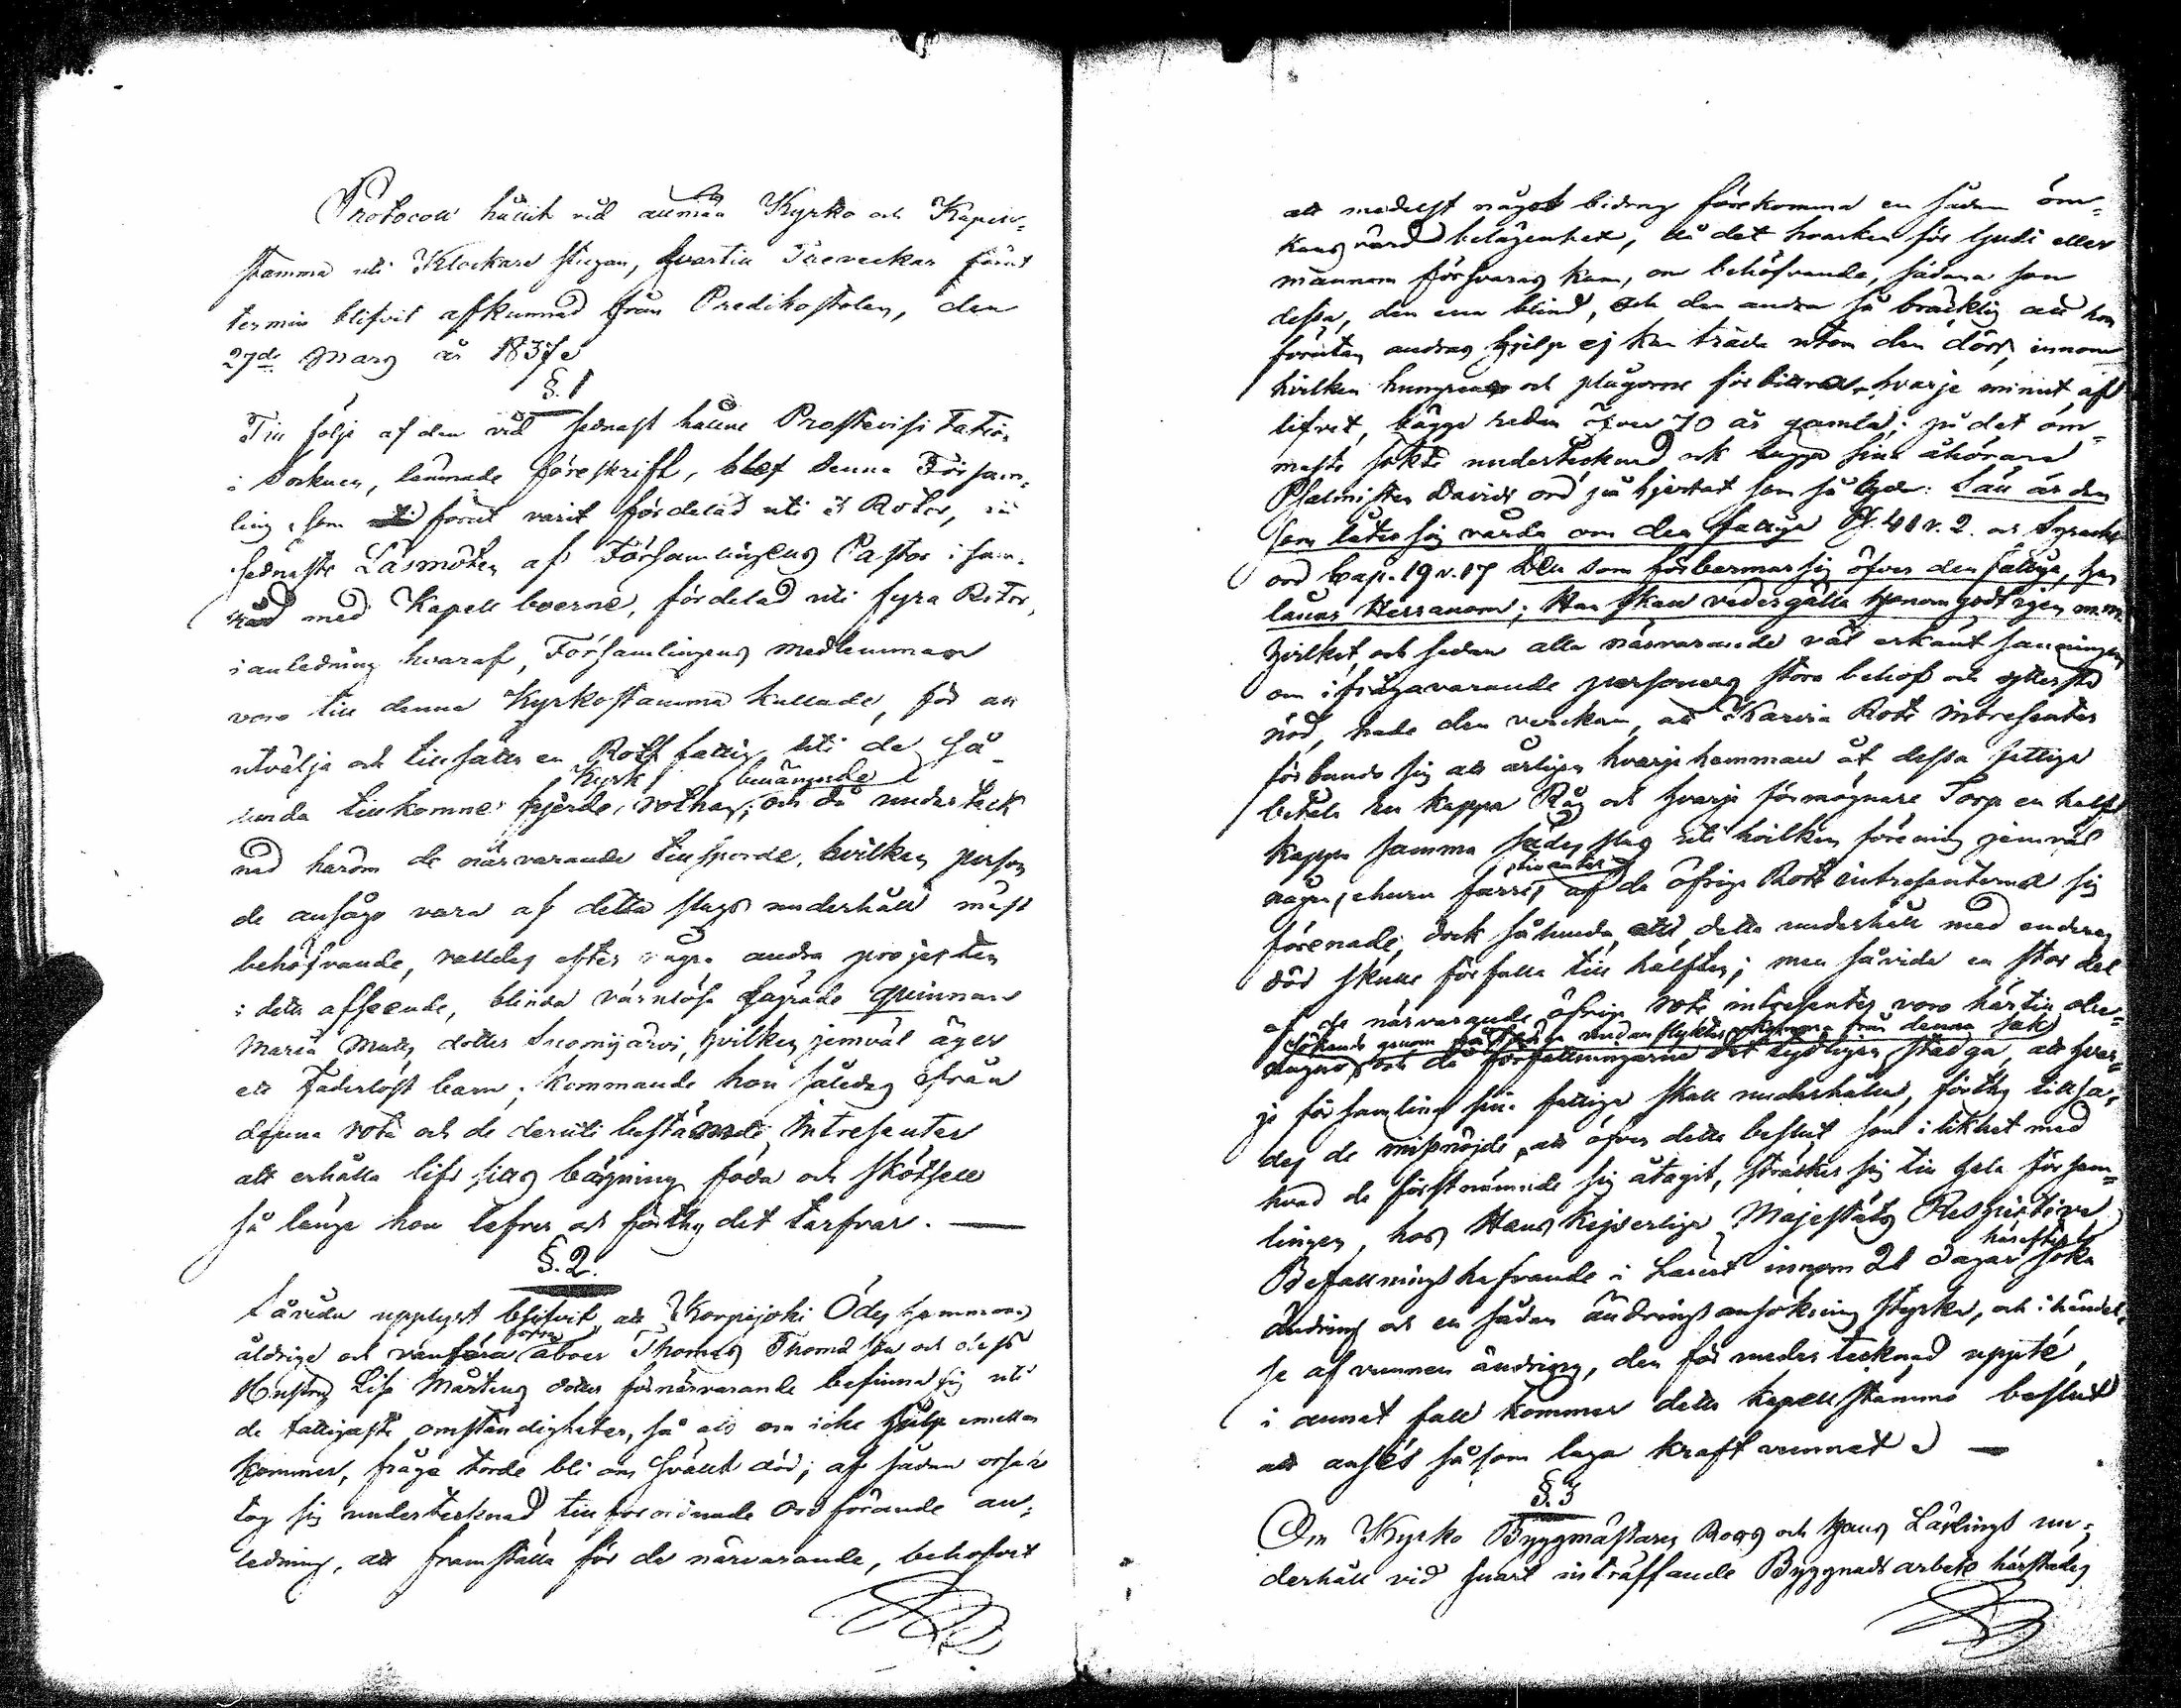 Protocoll hållit vid allmän Kyrko och Kapell-
stämma uti Klockare stugan, hvartill Tre veckor förut
termin blifvit afkunnad från Predikostolen, den
27de Mars år 1837.
§. 1
Till följe af den vid sednast hållne Prostevisitation
i Socknen, lämnade föreskrift, blef denna Församling,
som förut varit fördelad uti 3 Rotor, vid
sednaste Läsmöten af Församlingens Pastor i sam-
råd med Kapellboerne, fördelad uti fyra Rotor,
i anledning hvaraf, Församlingens medlemmar
voro till denna Kyrkostämma kallade, för att
utvälja och tillsätta en Rote fattig uti de så-
Kyrk benämnde
lunda tillkomne fjerde rothen; och då underteck
nad härom de närvarande tillsporde, hvilken person
de ansågo vara af detta slags underhåll mäst
behöfvande, valdes efter några andra projecten
i detta afseende, blinda värnlösa qvinnan
Maria Matts dotter Suomijärvi, hvilken jemväl äger
ett faderlöst barn; kommande hon således ifrån
denna rota och de deruti bestående Intresenter
att erhålla lifs sitts bärgning föda och skötsell
så länge hon lefver och förthy det tarfvar. —
§. 2.
Såvida upplyst blifvit, att Korpijoki Ödes hemmans
förra
åldrige och vanföra åboer Thomas Thomasson och dess
Hustru Lisa Mårtens dotter förnärvarande befinna sig uti
de fattigaste omständigheter, så att om icke hjelp emellan
kommer, fråga torde bli om svält död; af sådan orsak
tog sig undertecknad tillförordnade Ordförande an-
ledning, att framställa för de närvarande, behofvet
att medelst något bidrag förekomma en sådan öm-
kans värd belägenhet, då det hvarken för Gudi eller
mannom försvaras kan, om behöfvande, sådana som
dessa, den ena blind, och den andra så bräcklig att hon
förutan andras hjelp ej kan träda utom den dörr, innom
hvilken hungren och plågorne förbittra hvarje minut af
lifvet, bägge redan öfver 70 år gamla; på det öm-
maste sökte undertecknad ock lägga sina åhörare
Psalmisten Davids ord på hjertat som så lyda: Säll är den
som låter sig vårda om den fattiga Ps. 41 v. 2. och Syrachs
ord Cap. 19 v. 17 Den som förbarmar sig öfver den fattiga, han
lånar Herranom; Han skall vedergälla honom godt igen m.m.
Hvilket, och sedan alla närvarande väl erkänt sanningen
om ifrågavarande personers stora behof och yttersta
nöd, hade den verckan, att Karvia Rote intresenter
förbundo sig att årligen hvarje hemman åt dessa fattiga
betala en kappa Råg och hvarje förmögnare Torp en half
kappa samma sädes slag uti hvilken förening jemväl
några, ehuru färre, af de öfrige Rote intresenterna sig
förenade, dock sålunda att detta underhåll med enderas
död skulle förfalla till hälften; men såvida en stor del
af de närvarande öfrige Rote intresenter voro härtill obe-
från denna sak
och då författningarne det tydligen stadga, att hvar-
je församling sina fattiga skall underhålla, förthy tillsa-
des de missnöjde, att öfver detta beslut som i likhet med
hvad de förstnämnde sig åtagit, sträcker sig till hela försam-
lingen, hos Hans Kejserliga Majestäts Respective
härefter
Befallningshafvande i Länet innom 21 dagar söka
ändring och en sådan ändrings ansökning styrka, och i händel-
se af vunnen ändring, den för undertecknad uppté,
i annat fall kommer detta kapellstämmo beslut
att anses såsom laga kraft vunnet. —
§. 3
Om Kyrko Byggmästaren Roos och Hans Lärlings un-
derhåll vid snart inträffande Byggnads arbete härstädes